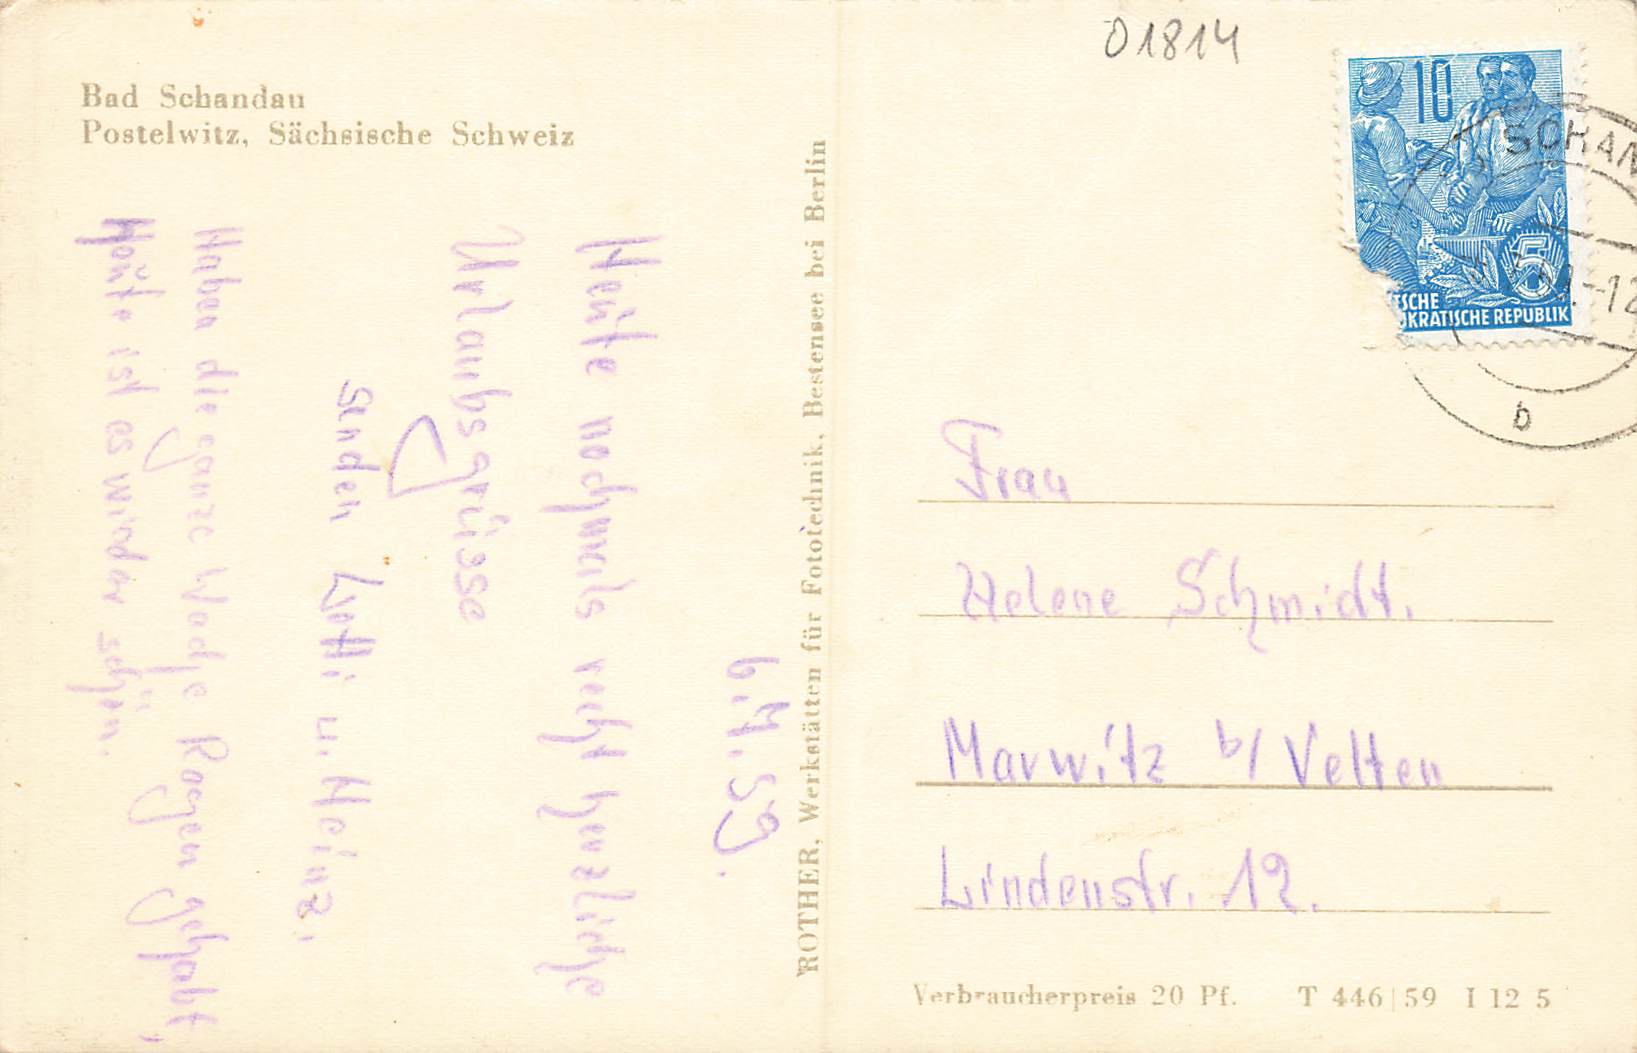 01814
Bad Schandau
Postelwitz, Sächsische Schweiz
10
5
TSCHE
OKRATISCHE REPUBLIK
SCHAN
-12
b
6.M.59.
Heute nochmals recht herzliche
Urlaubsgrüsse
senden Lotti u. Heinz.
Haben die ganze Woche Regen gehabt,
Heute ist es wieder schön.
ROTHER, Werkstätten für Fototechnik, Bestensee bei Berlin
Frau
Helene Schmidt.
Marwitz b/ Velten
Lindenstr. 12.
Verbraucherpreis 20 Pf. T 446|59 I 12 5